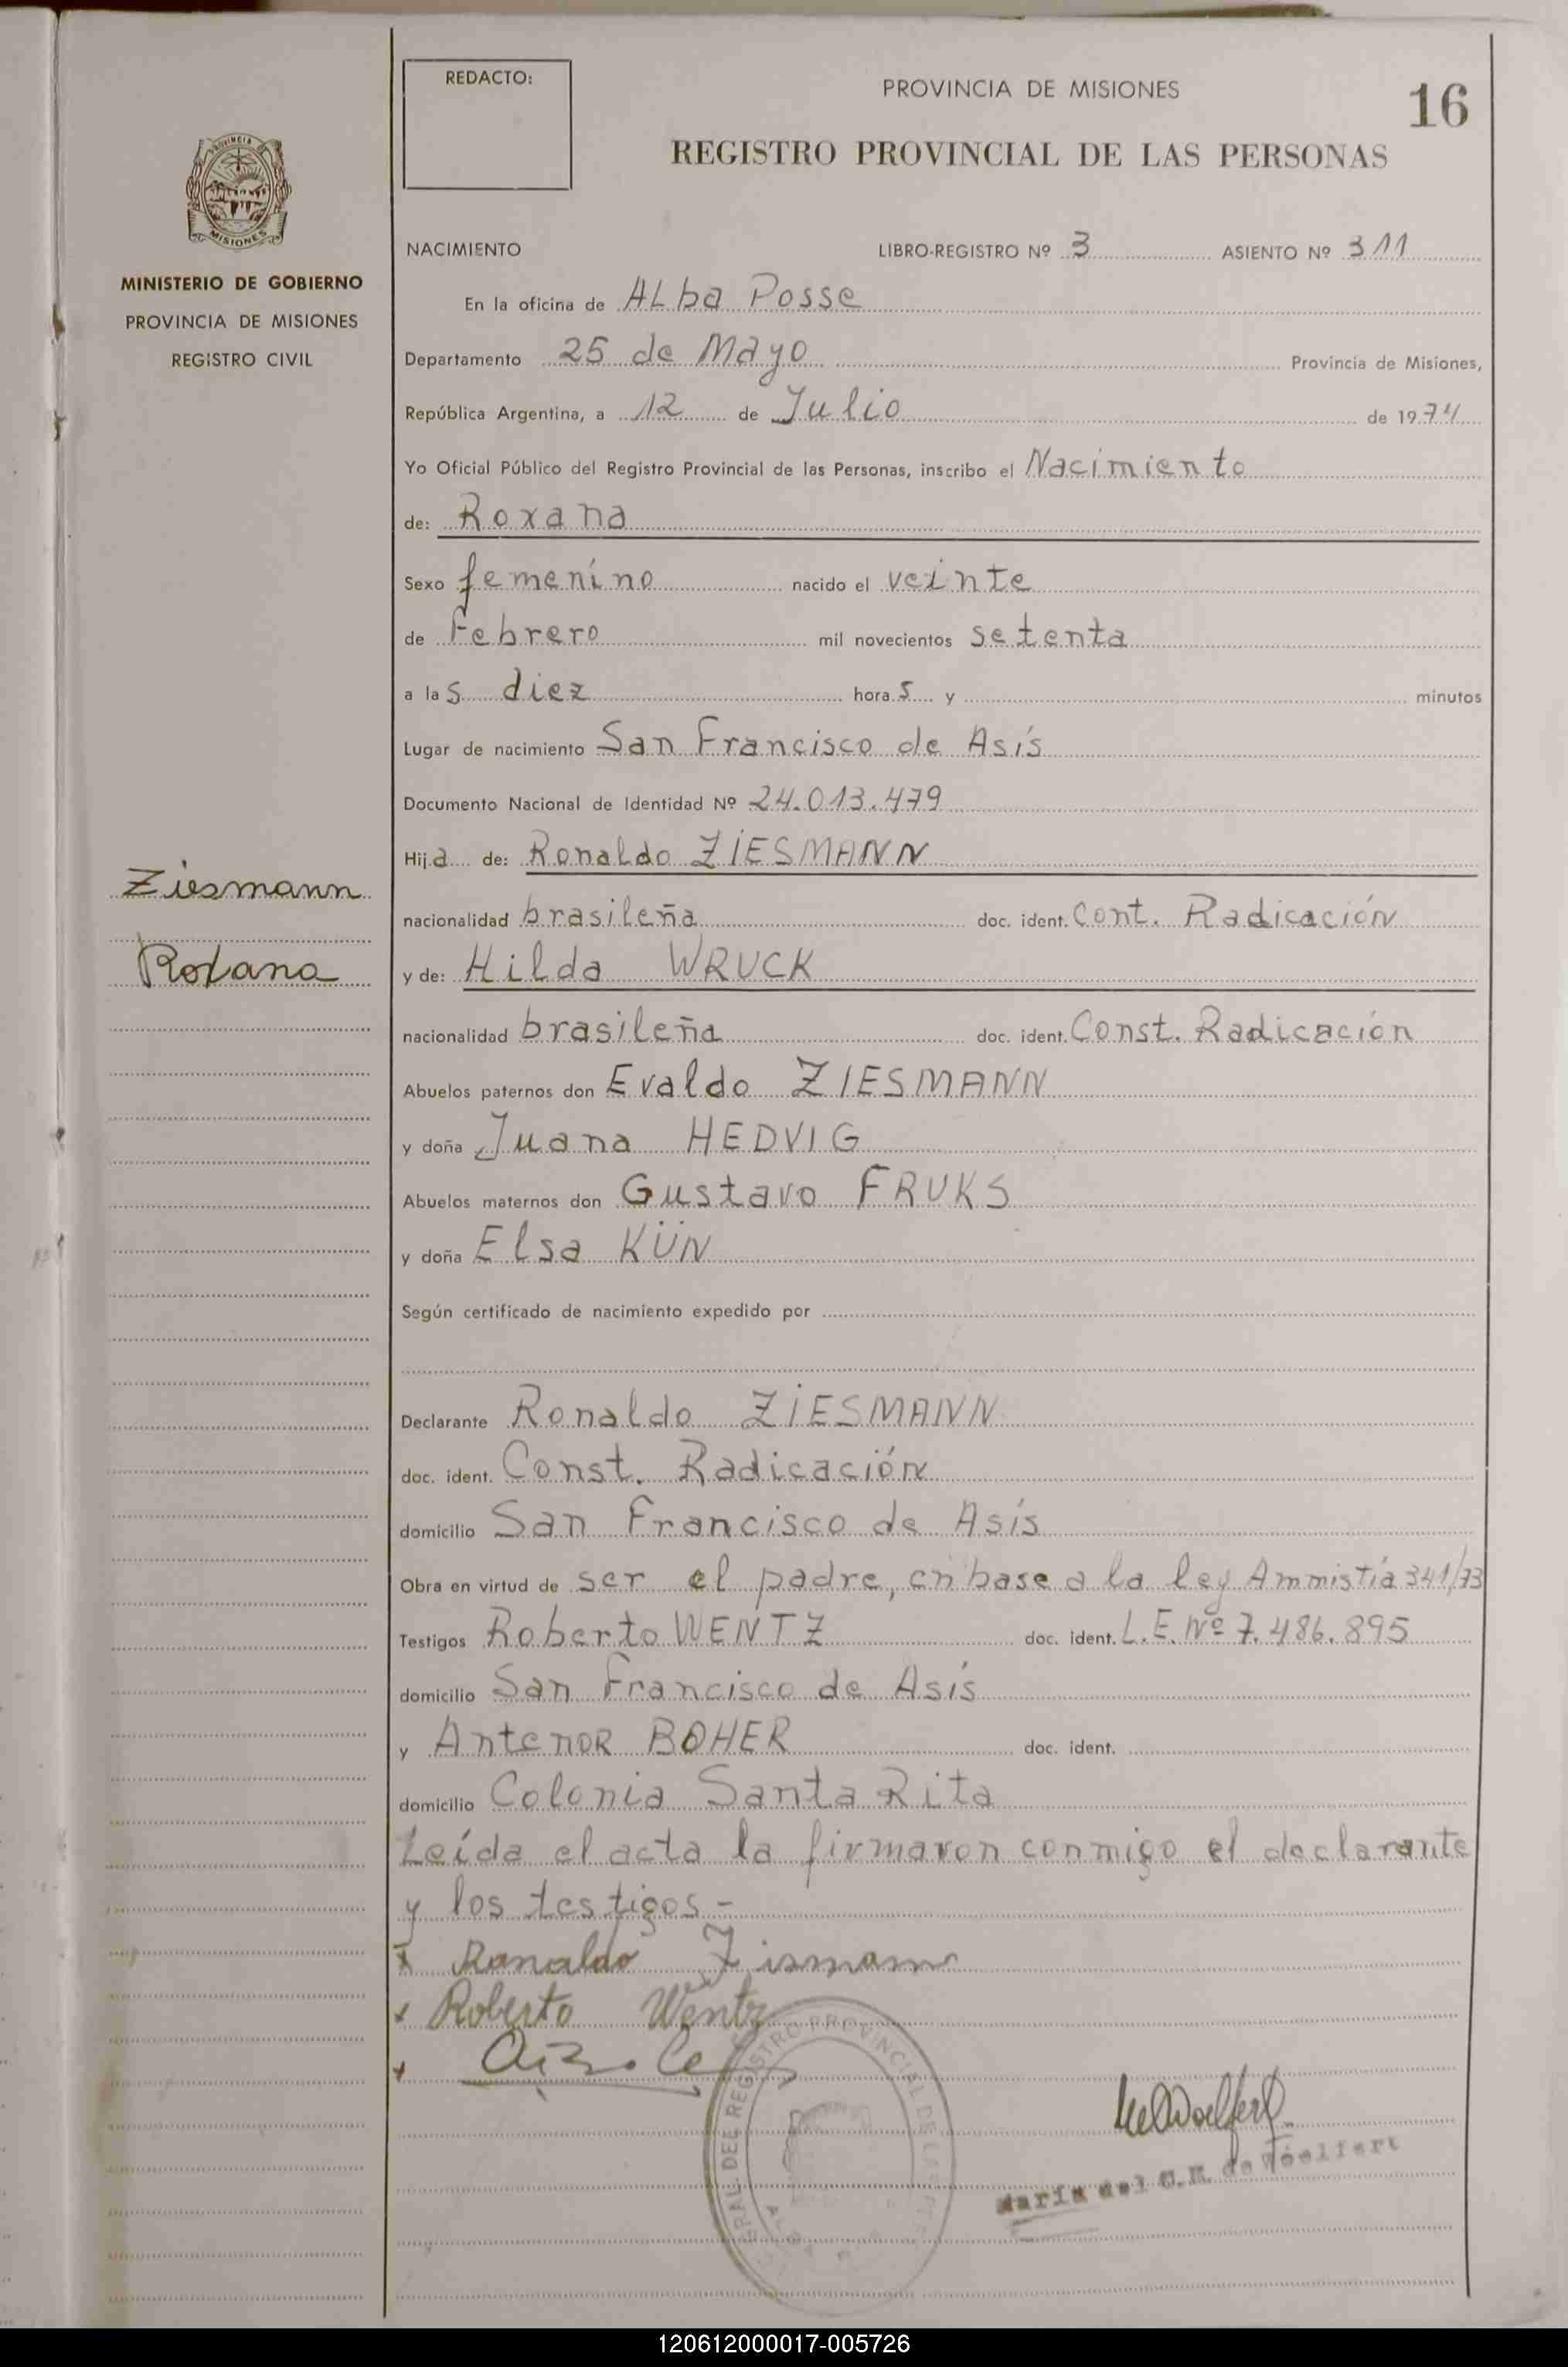 REDACTO:
PROVINCIA DE MISIONES
16
REGISTRO PROVINCIAL DE LAS PERSONAS
PROVINCIA DE
MISIONES
MINISTERIO DE GOBIERNO
PROVINCIA DE MISIONES
REGISTRO CIVIL
NACIMIENTO LIBRO-REGISTRO Nº 3 ASIENTO Nº 311
En la oficina de ALba Posse
Departamento 25 de Mayo Provincia de Misiones,
República Argentina, a 12 de Julio de 1974
Yo Oficial Público del Registro Provincial de las Personas, inscribo el Nacimiento
de: Roxana
Sexo femenino nacido el veinte
de Febrero mil novecientos setenta
a las diez horas y minutos
Lugar de nacimiento San Francisco de Asís
Documento Nacional de Identidad Nº 24.013.479
Hija de: Ronaldo ZIESMANN
Ziesmann
nacionalidad brasileña doc. ident. Cont. Radicación
Roxana
y de: Hilda WRUCK
nacionalidad brasileña doc. ident. Const. Radicación
Abuelos paternos don Evaldo ZIESMANN
y doña Juana HEDVIG
Abuelos maternos don Gustavo FRUKS
y doña Elsa KÜN
Según certificado de nacimiento expedido por
Declarante Ronaldo ZIESMANN
doc. ident. Const. Radicación
domicilio San Francisco de Asís
Obra en virtud de ser el padre, en base a la ley Ammistía 341/73
Testigos Roberto WENTZ doc. ident. L.E. Nº 7.486.895
domicilio San Francisco de Asís
y AntenOR BOHER doc. ident.
domicilio Colonia Santa Rita
Leída el acta la firmaron conmigo el declarante
y los testigos -
x Ronaldo Zismann
x Roberto Wentz
x
REGISTRO PROVINCIAL DE LAS
María del C.M. de Woelfert
120612000017-005726